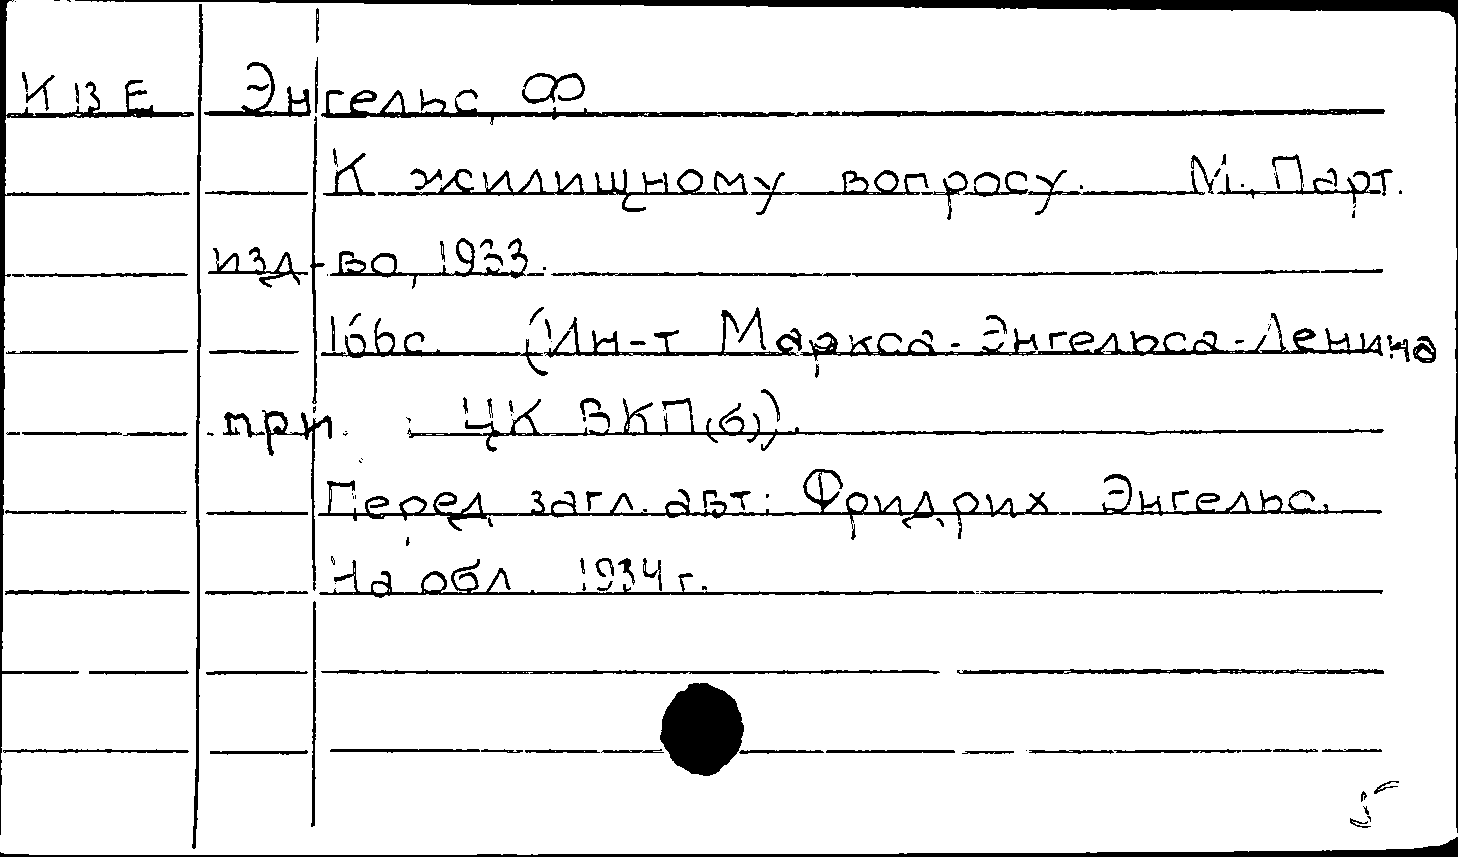 КВЕ Энгельс, Ф.
К жилищному вопросу. М., Парт.
изд-во, 1933.
166с. (Ин-т Маркса-Энгельса-Ленина
при ЦК ВКП(б)).
Перед загл. авт: Фридрих Энгельс.
На обл. 1934 г.
5